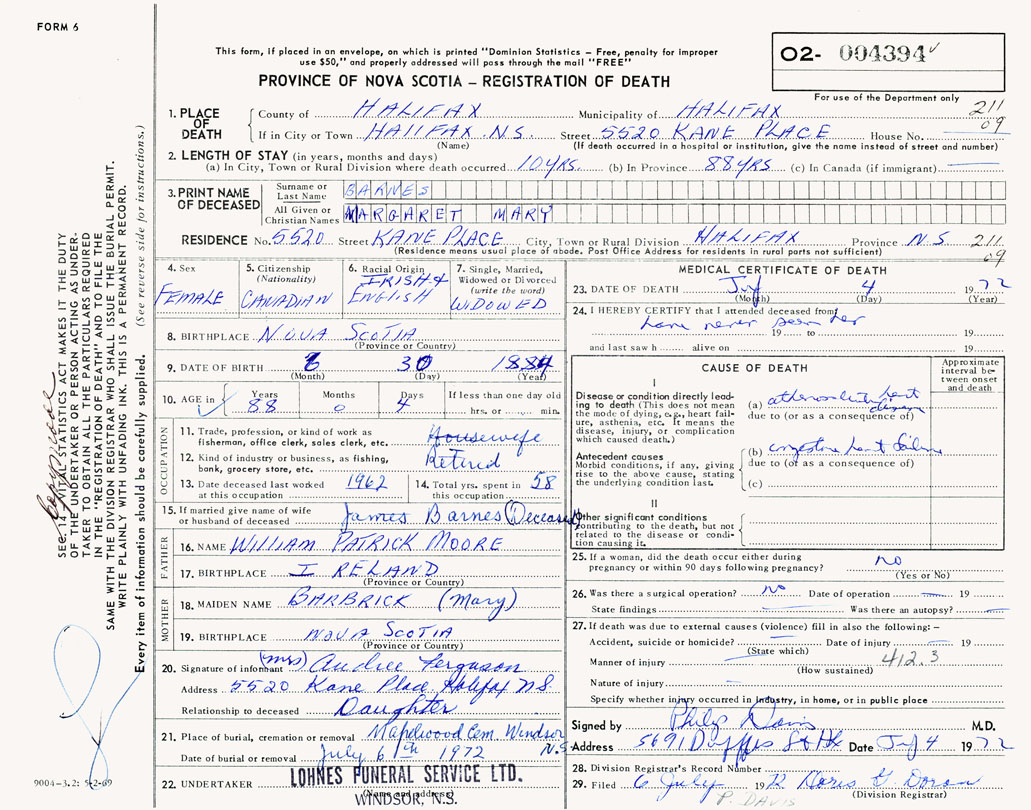 FORM 6
This form, if placed in an envelope, on which is printed "Dominion Statistics – Free, penalty for improper
use $50," and properly addressed will pass through the mail "FREE"
PROVINCE OF NOVA SCOTIA – REGISTRATION OF DEATH
O2- 004394
For use of the Department only
211
09
1. PLACE OF DEATH
County of HALIFAX Municipality of HALIFAX
If in City or Town HALIFAX N.S. Street 5520 KANE PLACE House No.
(Name) (If death occurred in a hospital or institution, give the name instead of street and number)
2. LENGTH OF STAY (in years, months and days)
(a) In City, Town or Rural Division where death occurred 10 YRS. (b) In Province 88 YRS (c) In Canada (if immigrant)
3. PRINT NAME OF DECEASED
Surname or Last Name BARNES
All Given or Christian Names MARGARET MARY
RESIDENCE No. 5520 Street KANE PLACE City, Town or Rural Division HALIFAX Province N.S 211
(Residence means usual place of abode. Post Office Address for residents in rural parts not sufficient) 09
4. Sex FEMALE
5. Citizenship (Nationality) CANADIAN
6. Racial Origin IRISH & ENGLISH
7. Single, Married, Widowed or Divorced (write the word) WIDOWED
8. BIRTHPLACE NOVA SCOTIA
(Province or Country)
9. DATE OF BIRTH 6 30 1884
(Month) (Day) (Year)
10. AGE in Years Months Days If less than one day old
88 0 4 hrs. or min.
OCCUPATION
11. Trade, profession or kind of work as fisherman, office clerk, sales clerk, etc. Housewife
12. Kind of industry or business, as fishing, bank, grocery store, etc. Retired
13. Date deceased last worked at this occupation 1962
14. Total yrs. spent in this occupation 58
15. If married give name of wife or husband of deceased James Barnes (Deceased)
FATHER
16. NAME WILLIAM PATRICK MOORE
17. BIRTHPLACE IRELAND
(Province or Country)
MOTHER
18. MAIDEN NAME BARBRICK (Mary)
19. BIRTHPLACE NOVA SCOTIA
(Province or Country)
20. Signature of informant (Mrs) Ferguson
Address 5520 Kane Place Halifax N S
Relationship to deceased Daughter
21. Place of burial, cremation or removal Maplewood Cem. Windsor N.S
Date of burial or removal July 6th 1972
22. UNDERTAKER LOHNES FUNERAL SERVICE LTD.
(Name and address)
WINDSOR, N.S.
MEDICAL CERTIFICATE OF DEATH
23. DATE OF DEATH July 4 1972
(Month) (Day) (Year)
24. I HEREBY CERTIFY that I attended deceased from
have never seen her
19 to 19
and last saw h alive on 19
CAUSE OF DEATH
Approximate interval between onset and death
I
Disease or condition directly leading to death (This does not mean the mode of dying, e.g., heart failure, asthenia, etc. It means the disease, injury, or complication which caused death.)
(a) heart disease
due to (or as a consequence of)
Antecedent causes
Morbid conditions, if any, giving rise to the above cause, stating the underlying condition last.
(b) congestive heart failure
due to (or as a consequence of)
(c)
II
Other significant conditions contributing to the death, but not related to the disease or condition causing it.
25. If a woman, did the death occur either during pregnancy or within 90 days following pregnancy? no
(Yes or No)
26. Was there a surgical operation? No Date of operation 19
State findings Was there an autopsy?
27. If death was due to external causes (violence) fill in also the following: –
Accident, suicide or homicide? Date of injury 19
(State which)
Manner of injury 412.3
(How sustained)
Nature of injury
Specify whether injury occurred in Industry, in home, or in public place
Signed by Philip Davis M.D.
Address 5691 Duffus St Hx Date July 4 1972
28. Division Registrar's Record Number
29. Filed 6 July 1972 Doris G. Doran
(Division Registrar)
P. DAVIS
SEC. 14 VITAL STATISTICS ACT MAKES IT THE DUTY
OF THE UNDERTAKER OR PERSON ACTING AS UNDERTAKER TO OBTAIN ALL THE PARTICULARS REQUIRED
IN THE "REGISTRATION OF DEATH" AND FILE THE
SAME WITH THE DIVISION REGISTRAR WHO SHALL ISSUE THE BURIAL PERMIT.
WRITE PLAINLY WITH UNFADING INK. THIS IS A PERMANENT RECORD.
Every item of information should be carefully supplied. (See reverse side for instructions.)
9004-3.2: 5-2-69